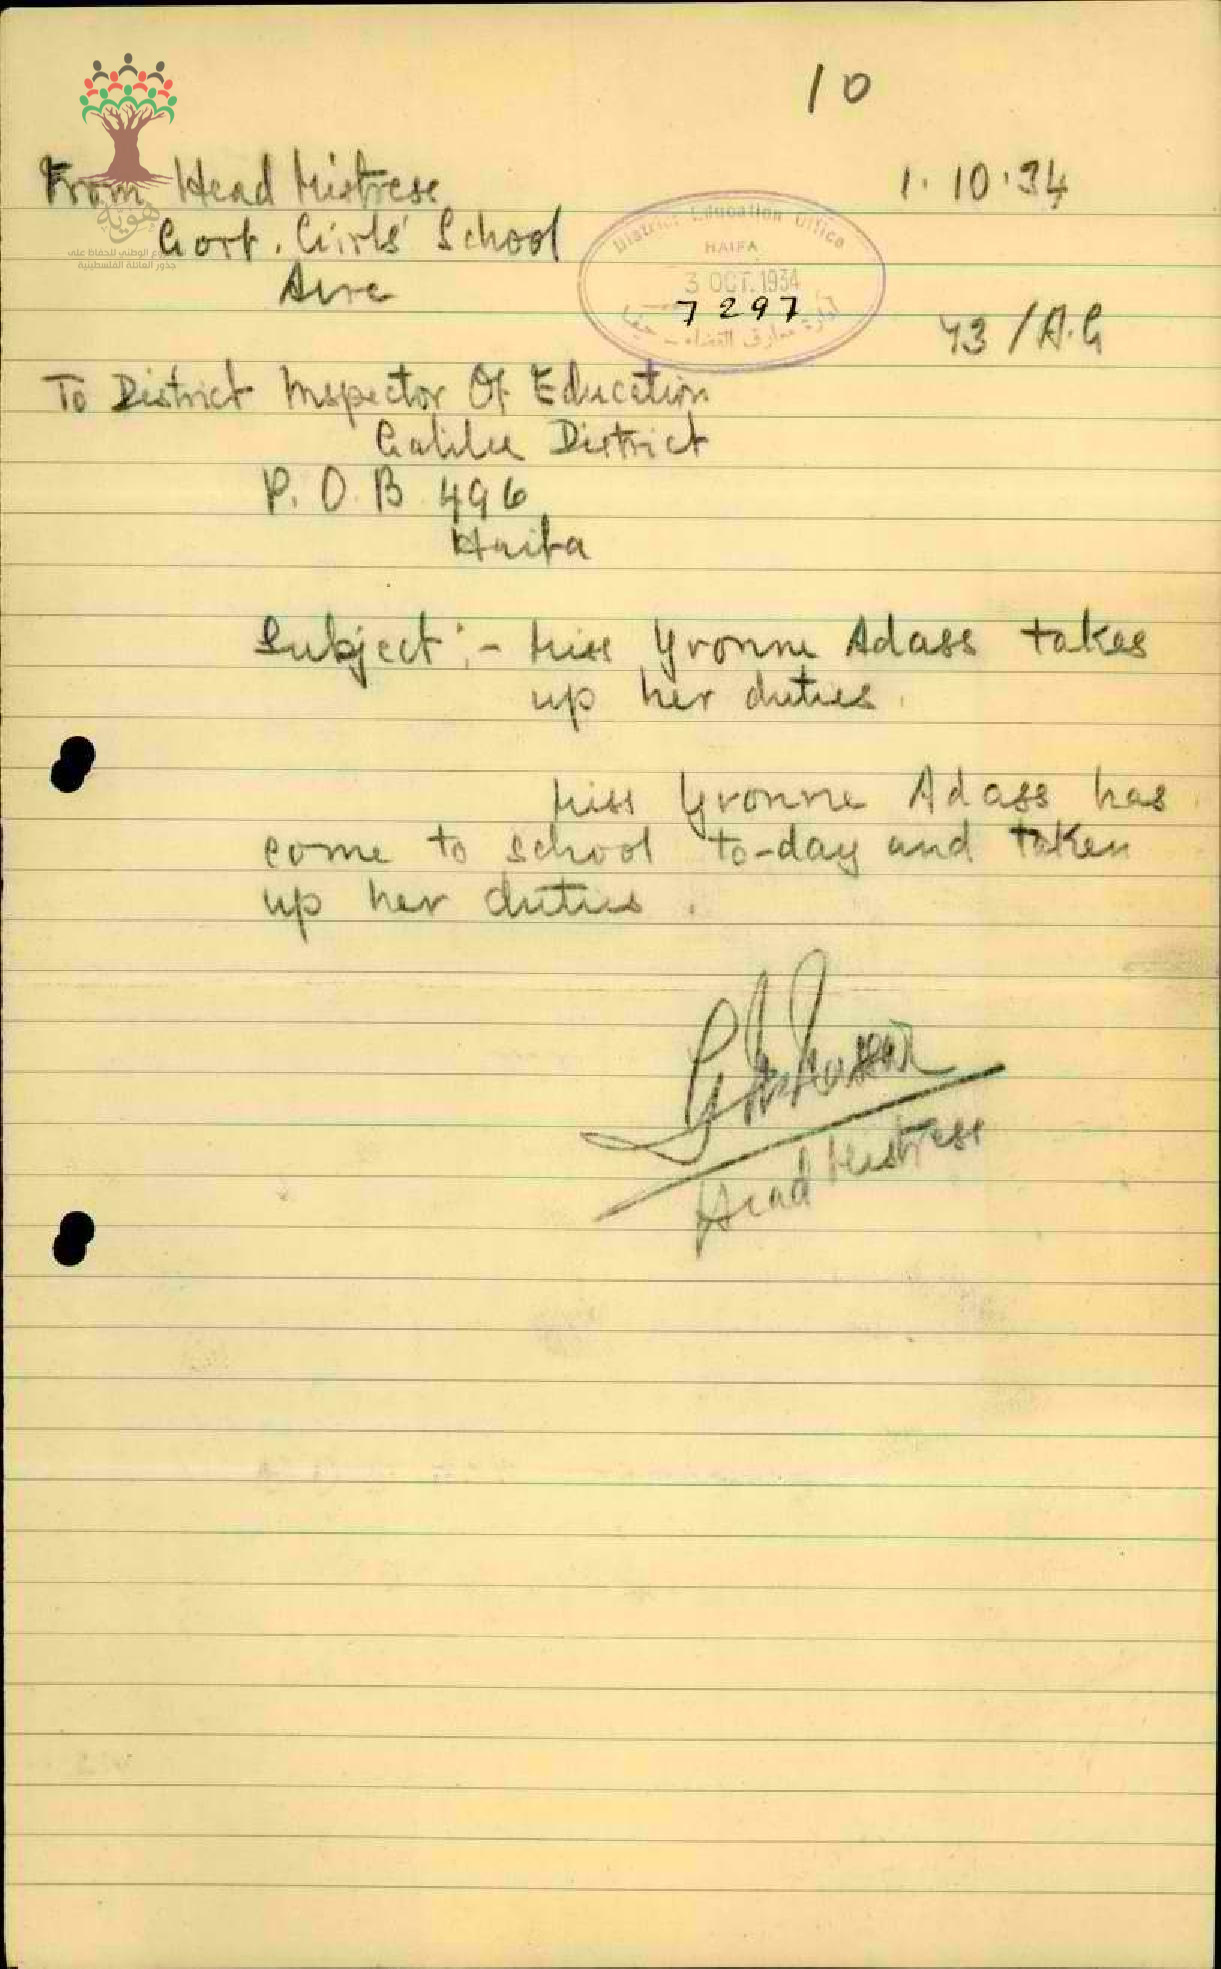 10
From Head Mistress
1.10.34
Govt. Girls' School
Acre
District Education Office
HAIFA
3 OCT. 1934
7297
إدارة معارف القضاء - حيفا
43/A.G
To District Inspector Of Education
Galilee District
P.O.B 496
Haifa
Subject:- Miss Yvonne Adass takes
up her duties.
Miss Yvonne Adass has
come to school to-day and taken
up her duties.
Head Mistress
هوية
المشروع الوطني للحفاظ على
جذور العائلة الفلسطينية